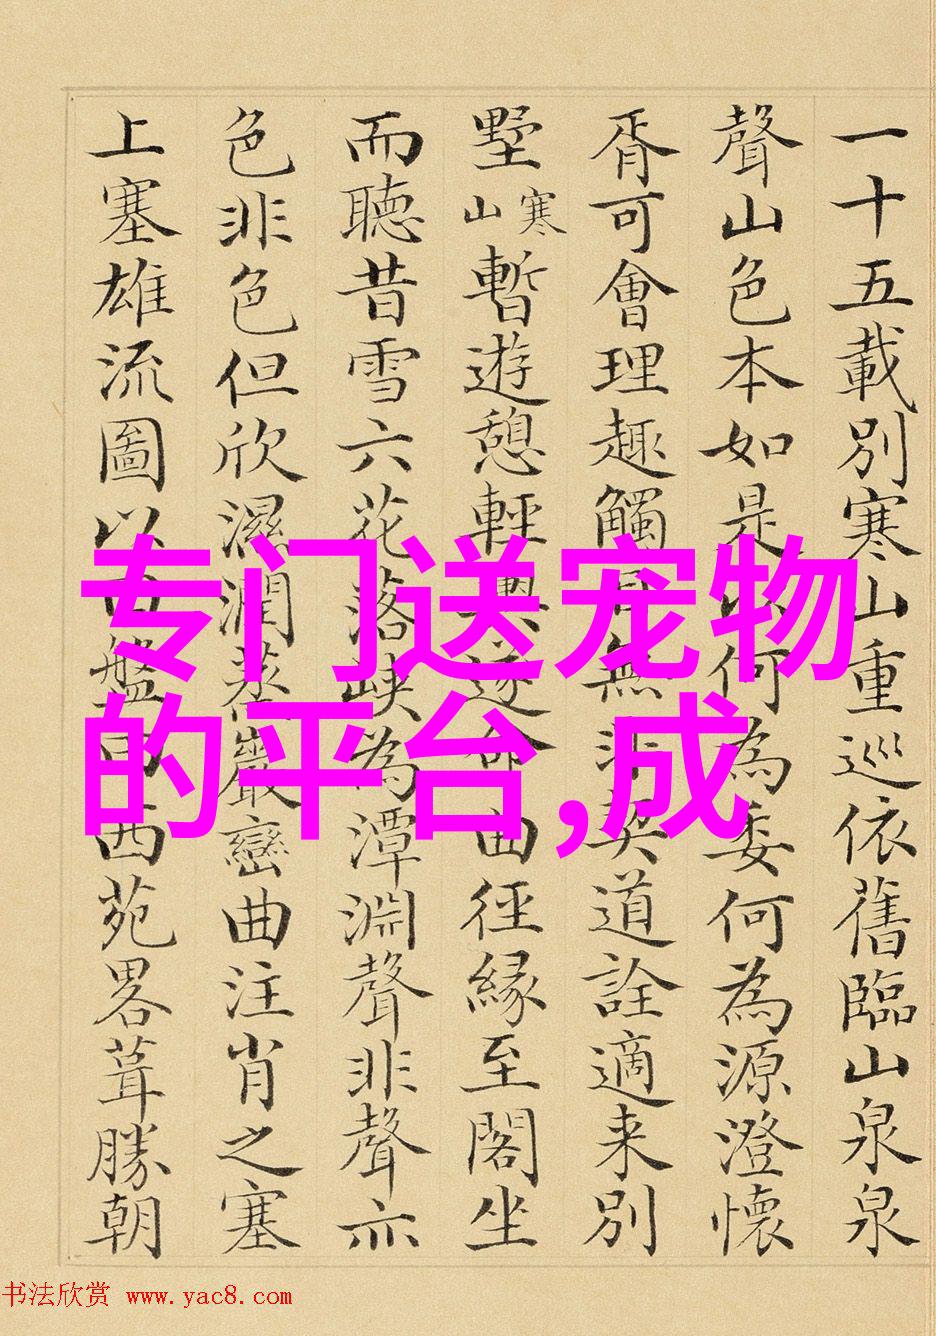 一十五載別寒山重巡依舊臨山泉泉
聲山色本如是以何為委何為源澄懷
胥可會理趣觸目無非契道詮適来別
墅寒山暫遊憩輕輿逐曲徑緣至閣坐
而聴昔雪六花落峽為潭淵聲非聲亦
色非色但欣濕潤蒸巖巒曲注肖之塞
上塞雄流圖以盤西苑畧葺勝朝
专门送宠物
的平台,成
书法欣赏 www.yac8.com